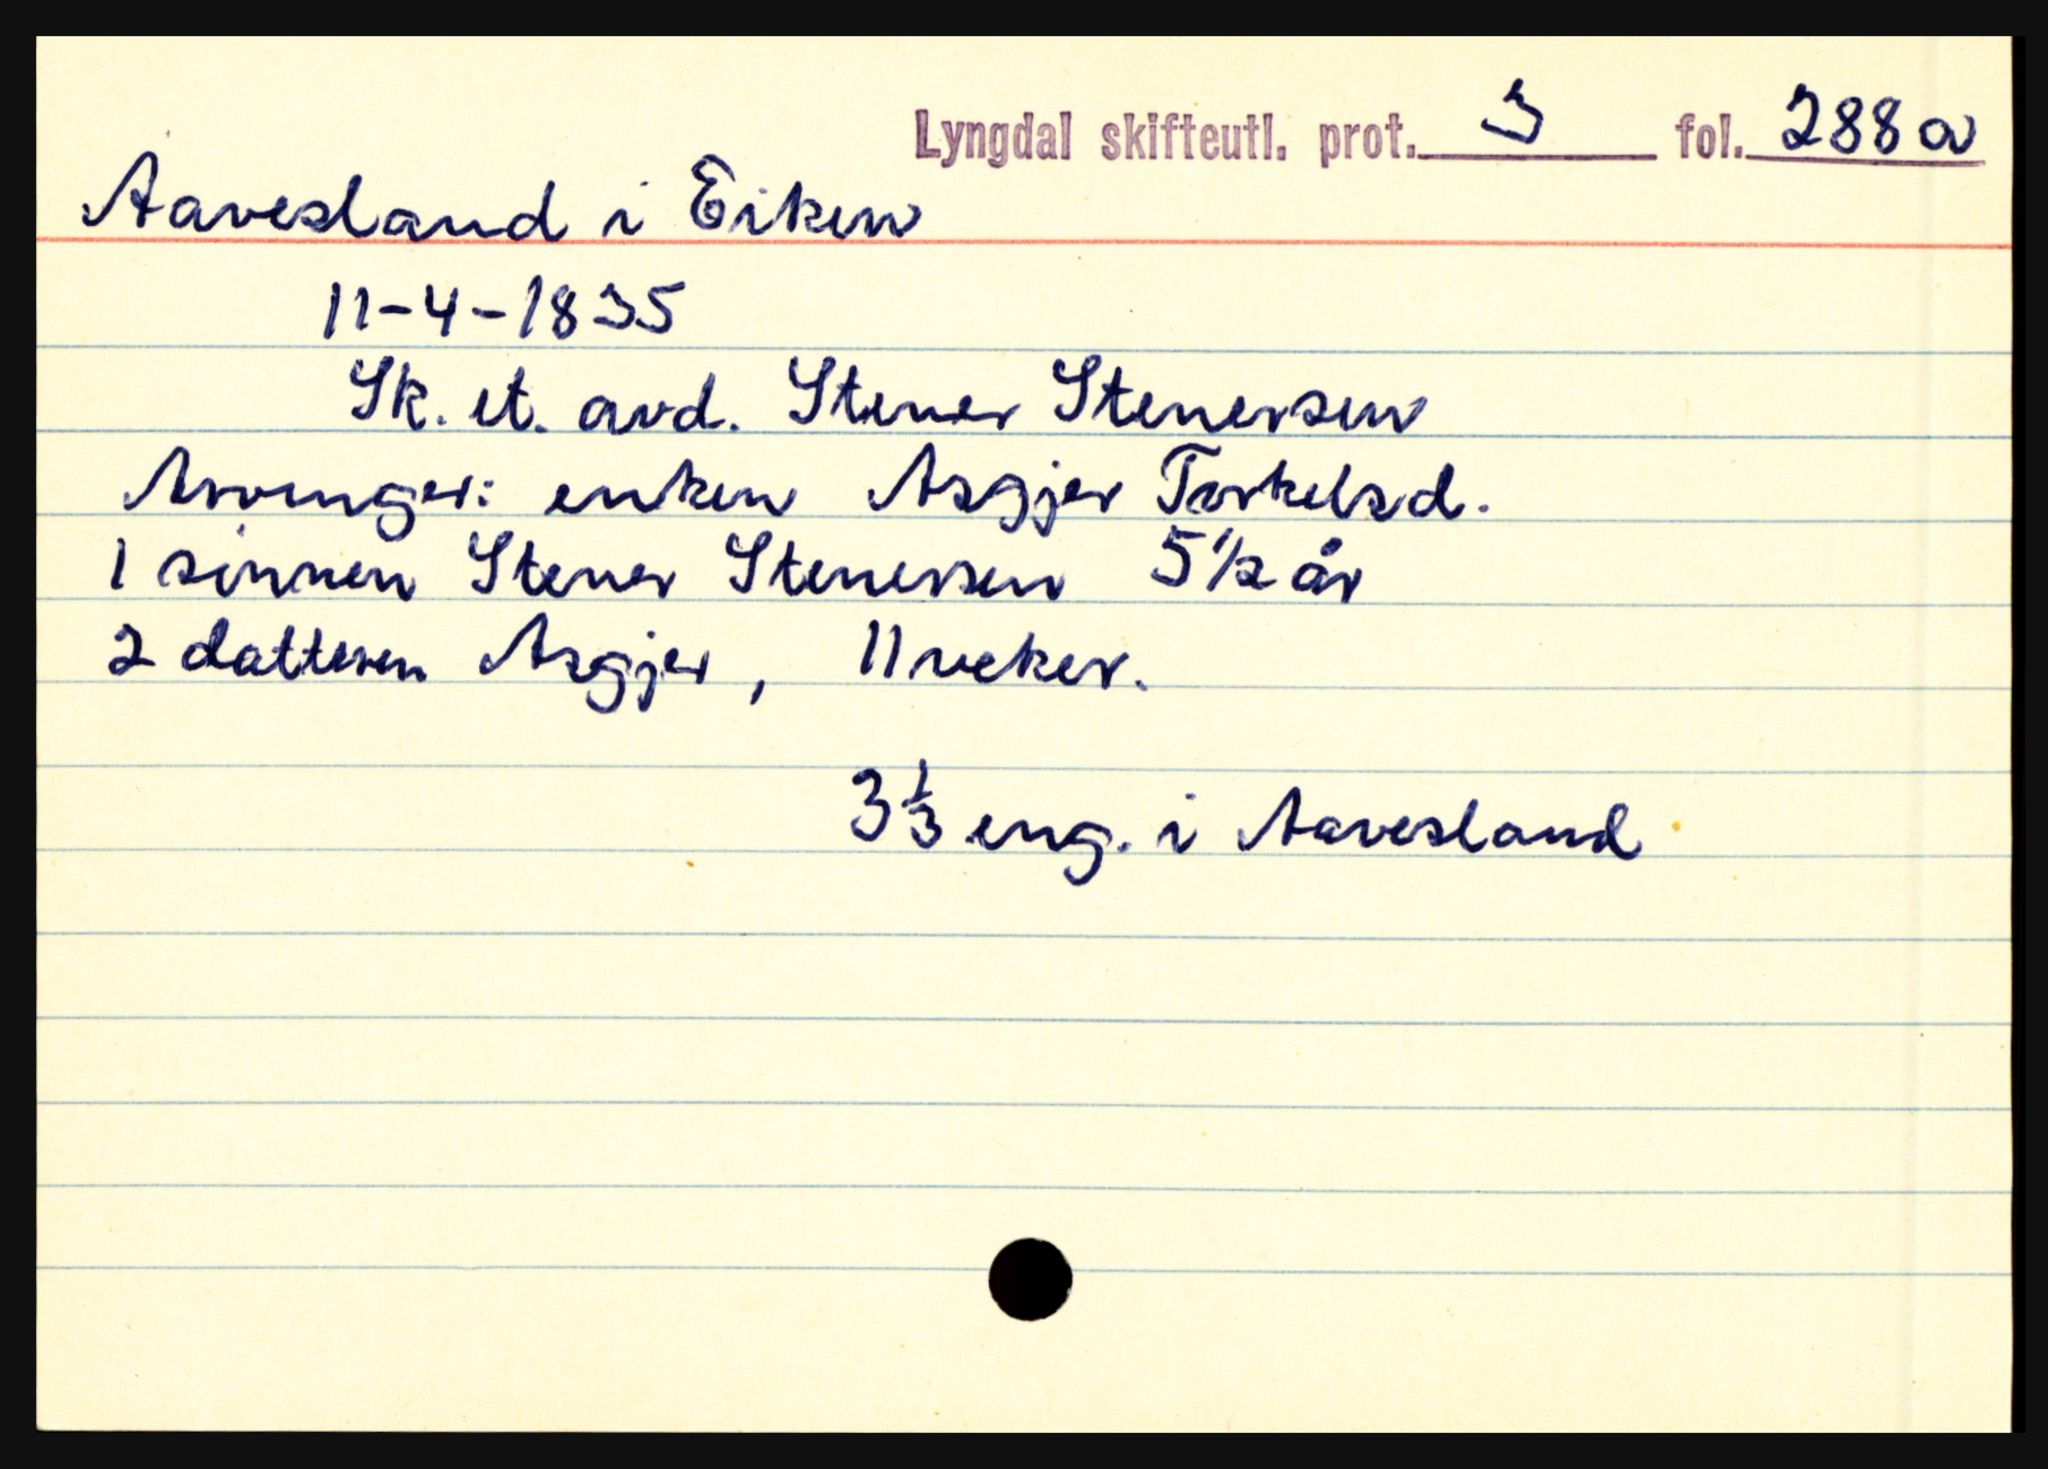 Lyngdal skifteutl. prot. 3 fol. 288a
Aavesland i Eiken
11-4-1835
Sk. et. avd. Stener Stenersen
Arvinger: enken Asgjer Torkelsd.
1 sønnen Stener Stenersen 5 1/2 år
2 datteren Asgjer, 11 veker.
3 1/3 eng. i Aavesland